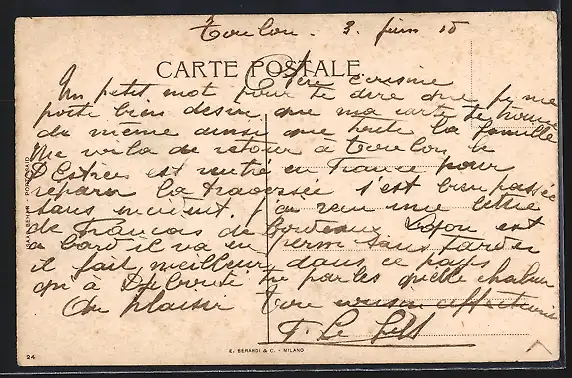 Toulon. 3. juin 15
CARTE POSTALE
Chère cousine
Un petit mot pour te dire que je me
porte bien desire que ma carte te trouve
de meme ainsi que toute la famille
Me voila de retour a Toulon le
D'Estrées est rentré en France pour
reparer la traversée s'est bien passée
sans incident. j'ai recu une lettre
de Francois de Bordeaux Lafon est
a bord il va en perm sans tarder
il fait meilleur dans ce pays
qu'à Djibouti tu parles quelle chaleur
Au plaisir Ton cousin affectueux
F. Le
JEAN BEHAR - PORT-SAID
24
E. BERARDI & C. - MILANO